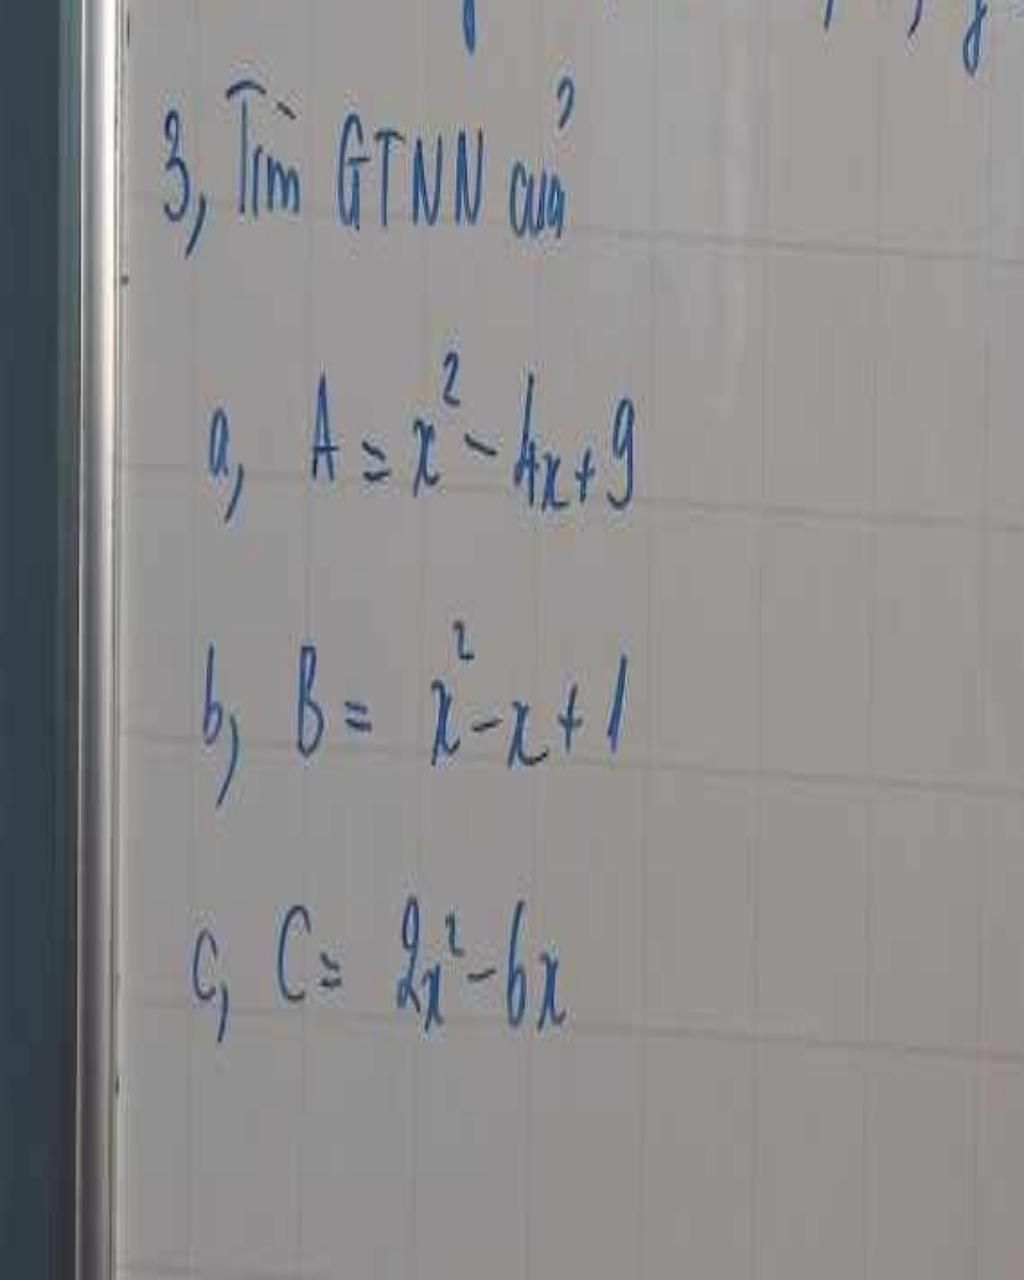 3, Tìm GTNN của
a, A = x² - 4x + 9
b, B = x² - x + 1
c, C = 2x² - 6x